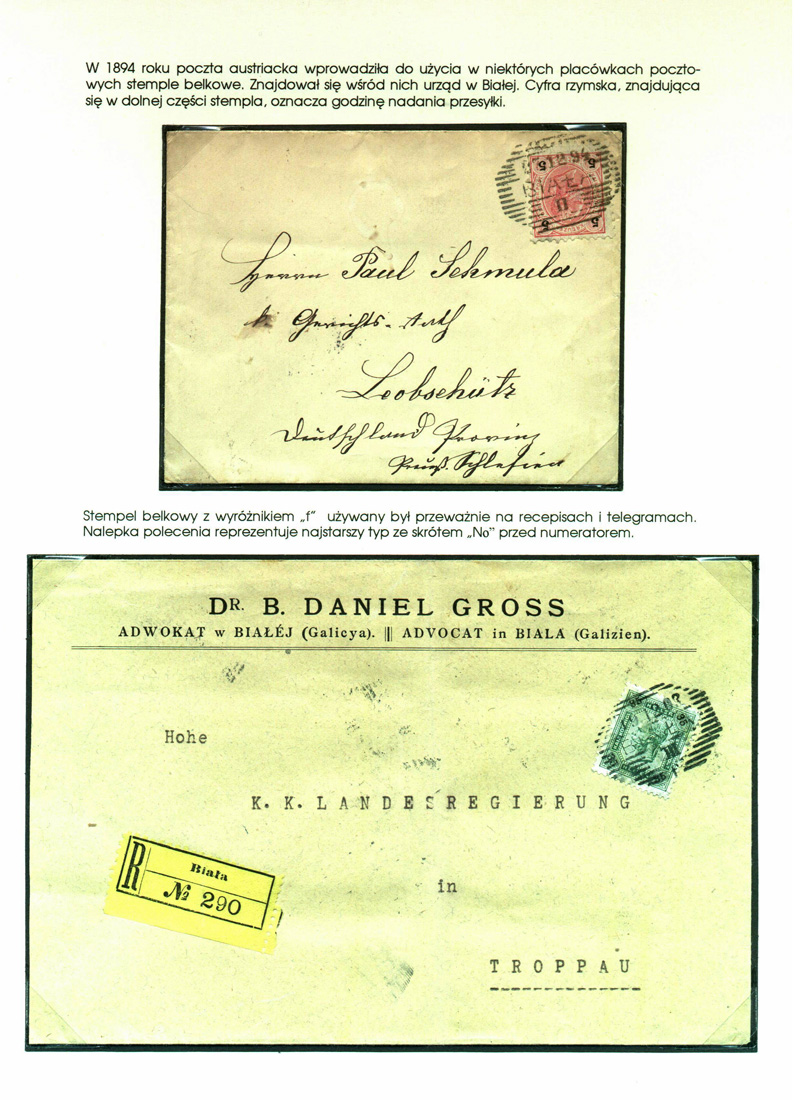 W 1894 roku poczta austriacka wprowadziła do użycia w niektórych placówkach poczto-
wych stemple belkowe. Znajdował się wśród nich urząd w Białej. Cyfra rzymska, znajdująca
się w dolnej części stempla, oznacza godzinę nadania przesyłki.
5 5
12 94
BIAŁA
II
5 5
Herrn Paul Schmula
Gerichts-Rath
Leobschütz
Deutschland Provinz
Preuß. Schlesien
Stempel belkowy z wyróżnikiem „f” używany był przeważnie na recepisach i telegramach.
Nalepka polecenia reprezentuje najstarszy typ ze skrótem „No” przed numeratorem.
DR. B. DANIEL GROSS
ADWOKAT w BIAŁÉJ (Galicya). ||| ADVOCAT in BIALA (Galizien).
Hohe
K. K. LANDESREGIERUNG
R
Biała
№ 290
in
TROPPAU